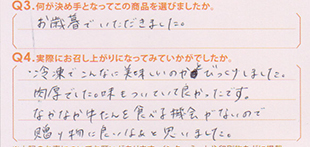 Q3.何が決め手となってこの商品を選びましたか。
お歳暮でいただきました。
Q4.実際にお召し上がりになってみていかがでしたか。
冷凍でこんなに美味しいのかびっくりしました。
肉厚でした。味もついていて良かったです。
なかなか牛たんを食べる機会がないので
贈り物に良いなぁと思いました。